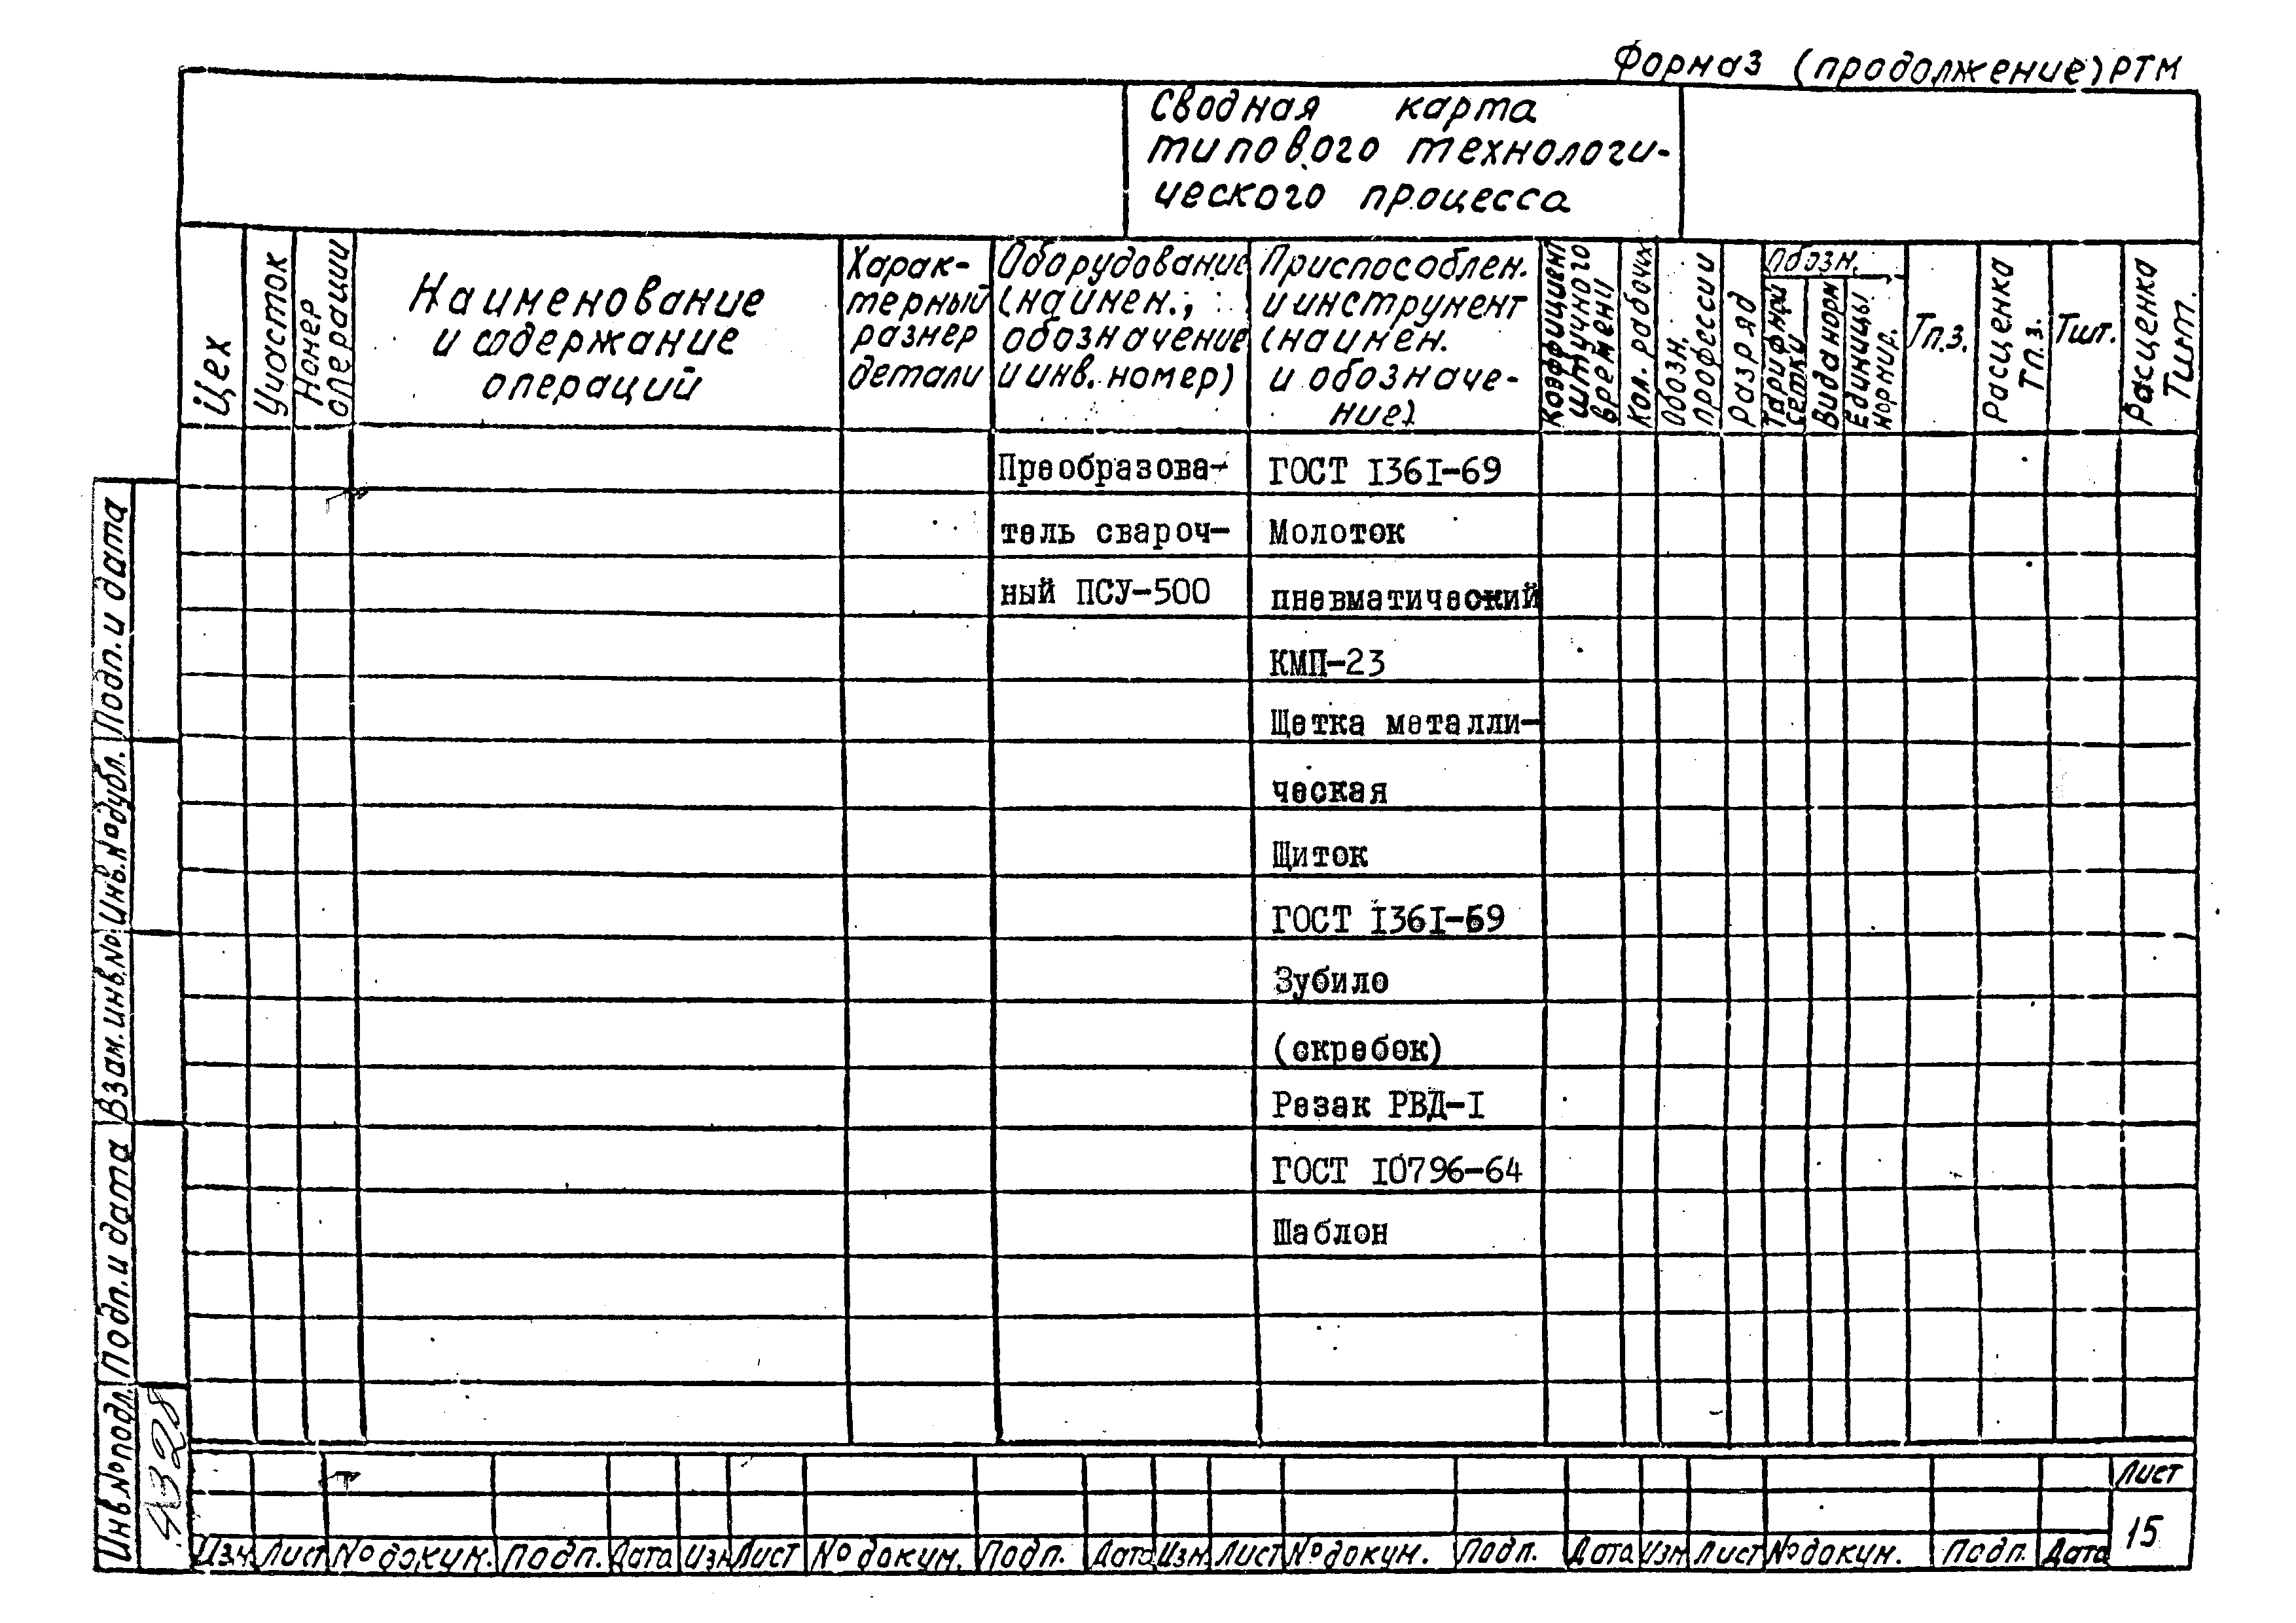 Форма 3 (продолжение) РТМ
Сводная карта
типового технологи-
ческого процесса
Цех
Участок
Номер
операции
Наименование
и содержание
операций
Харак-
терный
размер
детали
Оборудование
(наимен.,
обозначение
и инв. номер)
Приспособлен.
и инструмент
(наимен.
и обозначе-
ние)
Коэффициент
штучного
времени
Кол. рабочих
Обозн.
профессии
Разряд
Обозн.
Тарифной
сетки
Вида норм
Единицы
нормир.
Тп.з.
Расценка
Тп.з.
Тшт.
Расценка
Тшт.
Преобразова- ГОСТ 1361-69
тель свароч- Молоток
ный ПСУ-500 пневматический
КМП-23
Щетка металли-
ческая
Щиток
ГОСТ 1361-69
Зубило
(скребок)
Резак РВД-1
ГОСТ 10796-64
Шаблон
Подп. и дата
Инв. № дубл.
Взам. инв. №
Подп. и дата
Инв. № подл.
4328
Лист
15
Изм. Лист № докум. Подп. Дата Изм Лист № докум. Подп. Дата Изм. Лист № докум. Подп. Дата Изм Лист № докум. Подп. Дата